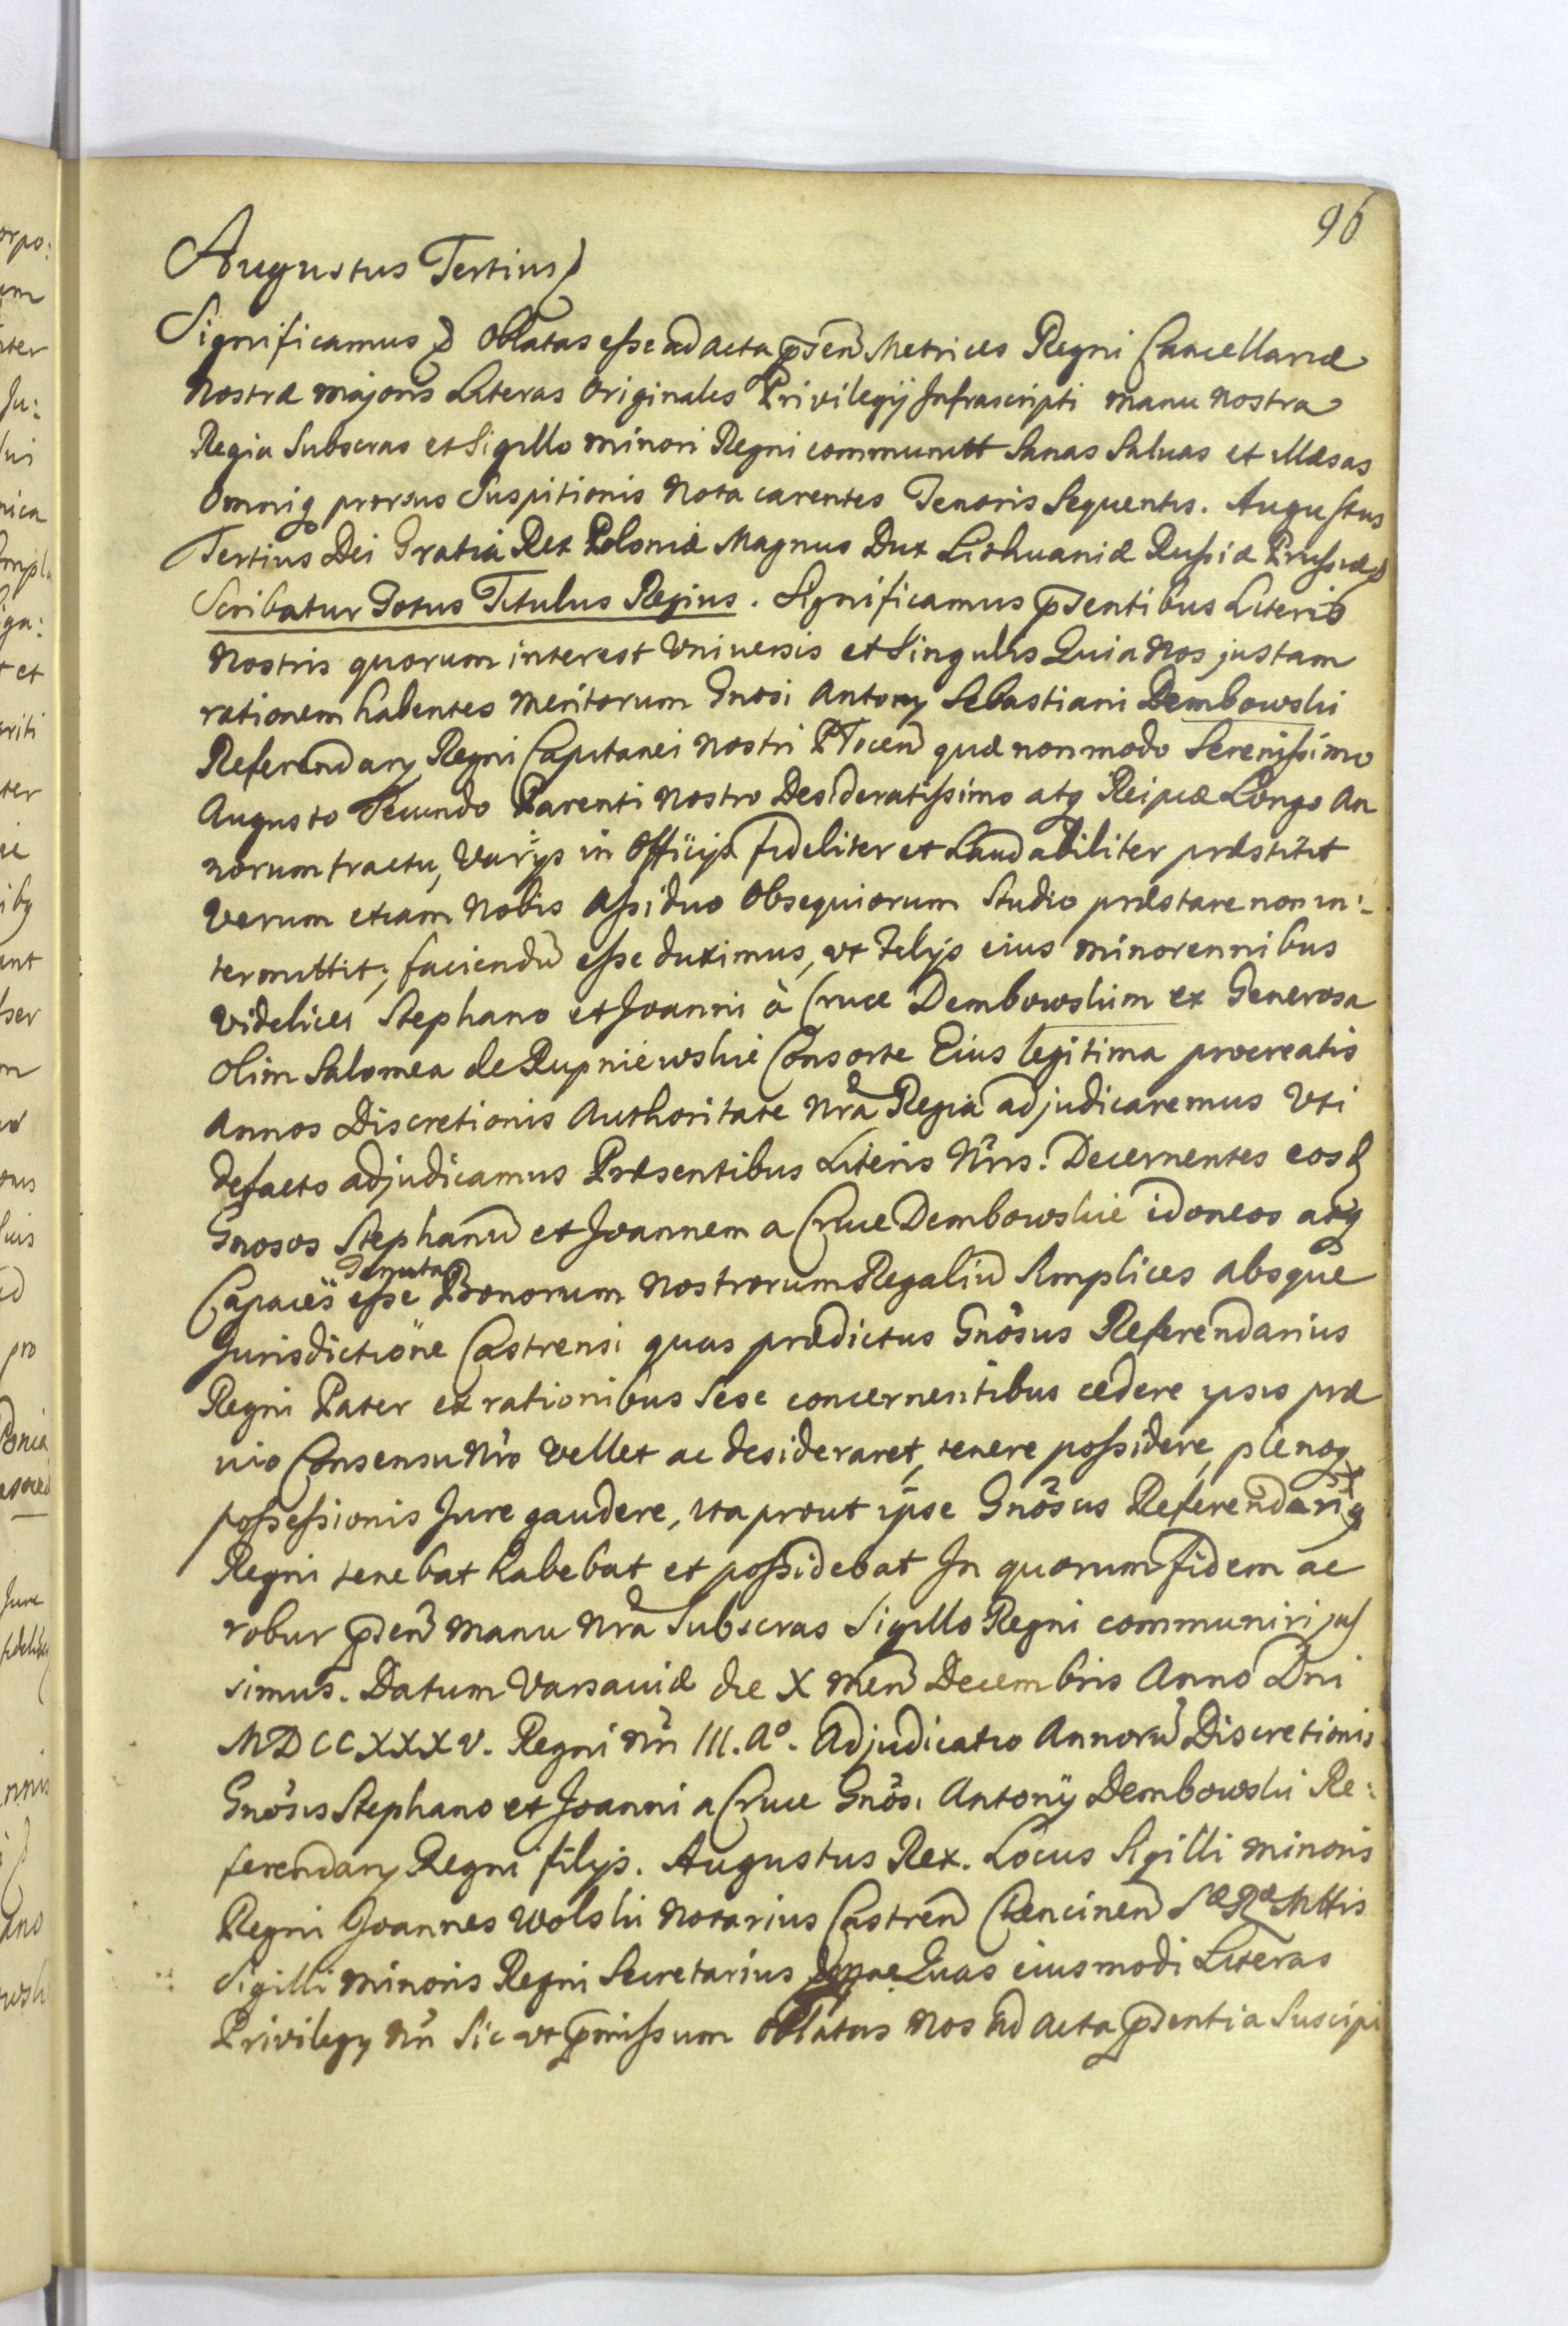 96
Augustus Tertius
Significamus Oblatas esse ad acta pnten Metrices Regni Cancellariæ
Nostræ majoris Literas Originales Privilegij Infrascripti manu nostra
Regia Subscras et Sigillo minori Regni communitt Sanas Saluas et illæsas
Omniq prorsus Suspitionis Nota carentes Tenoris Sequentis. Augustus
Tertius Dei Gratia Rex Poloniæ Magnus Dux Lithuaniæ Russiæ Prussiæ
Scribatur Totus Titulus Regius. Significamus pntentibus Literis
Nostris quorum interest Vniuersis et Singulis Quia Nos justam
rationem habentes meritorum Gnosi Antony Sebastiani Dembowski
Referendarij Regni Capitanei Nostri Plocen quæ non modo Serenissimo
Augusto Secundo Parenti Nostro Desideratissimo atq Reipcæ Longo An
norum tractu, Varijs in Officijs fideliter et Laudabiliter præstitit
Verum etiam Nobis Assiduo Obsequiorum Studio præstare non in:
termittit; faciendu esse duximus, vt Filijs eius minorennibus
Videlicet Stephano et Joanni à Cruce Dembowskim ex Generosa
olim Salomea de Rupniewskie Consorte Eius legitima procreatis
Annos Discretionis Authoritate Nra Regia adjudicaremus Vti
defacto adjudicamus Præsentibus Literis Nris. Decernentes eosd
Gnosos Stephanu et Joannem a Cruce Dembowskie idoneos atq
Capaces esse Tenutas Bonorum Nostrorum Regaliu Simplices absque
Jurisdictione Castrensi quas prædictus Gnosus Referendarius
Regni Pater ex rationibus Sese concernentibus cedere ipsis præ
uio Consensu Nro Vellet ac desideraret, tenere possidere, plenoq
possessionis Jure gaudere, ita prout ipse Gnosus Referendariq
Regni tenebat habebat et possidebat In quorum fidem ac
robur pnten manu Nra Subscras Sigillo Regni communiri jus
simus. Datum Varsauiæ die X men Decembris Anno Dni
MDCCXXXV. Regni Nri III. Ao. Adjudicatio Annoru Discretionis
Gnosis Stephano et Joanni a Cruce Gnosi Antonij Dembowski Re:
ferendarij Regni filijs. Augustus Rex. Locus Sigilli minoris
Regni Joannes Wolski Notarius Castren Chencinen Sæ Ræ Mttis
Sigilli minoris Regni Secretarius Quas eiusmodi Literas
Privilegij Nri Sic vt pmissum oblatas Nos ad Acta pntentia Suscipi